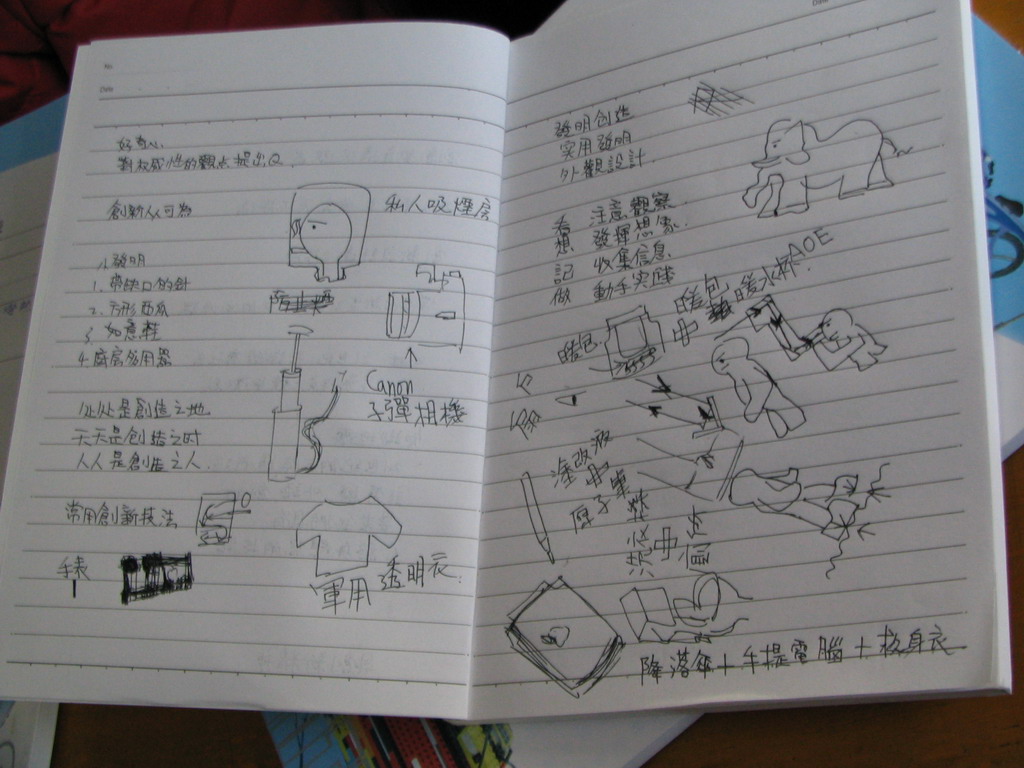 No.
Date
好奇心.
對敏感性的觀点提出Q.
創新人人可為
私人吸煙房
小發明
1. 帶缺口的針
2. 方形西瓜
3. 如意栓
4. 廚房多用器
Canon
子彈相機
处处是創造之地
天天是創造之时
人人是創造之人.
常用創新技法
手表
軍用透明衣.
Date
發明创造
実用發明
外觀設計.
看 注意觀察.
想 發揮想象.
記 收集信息.
做 動手実踐
AOE
暖包
中
暖水杯.
暖包.
塗改液
原子筆
降落傘+手提電腦+救身衣